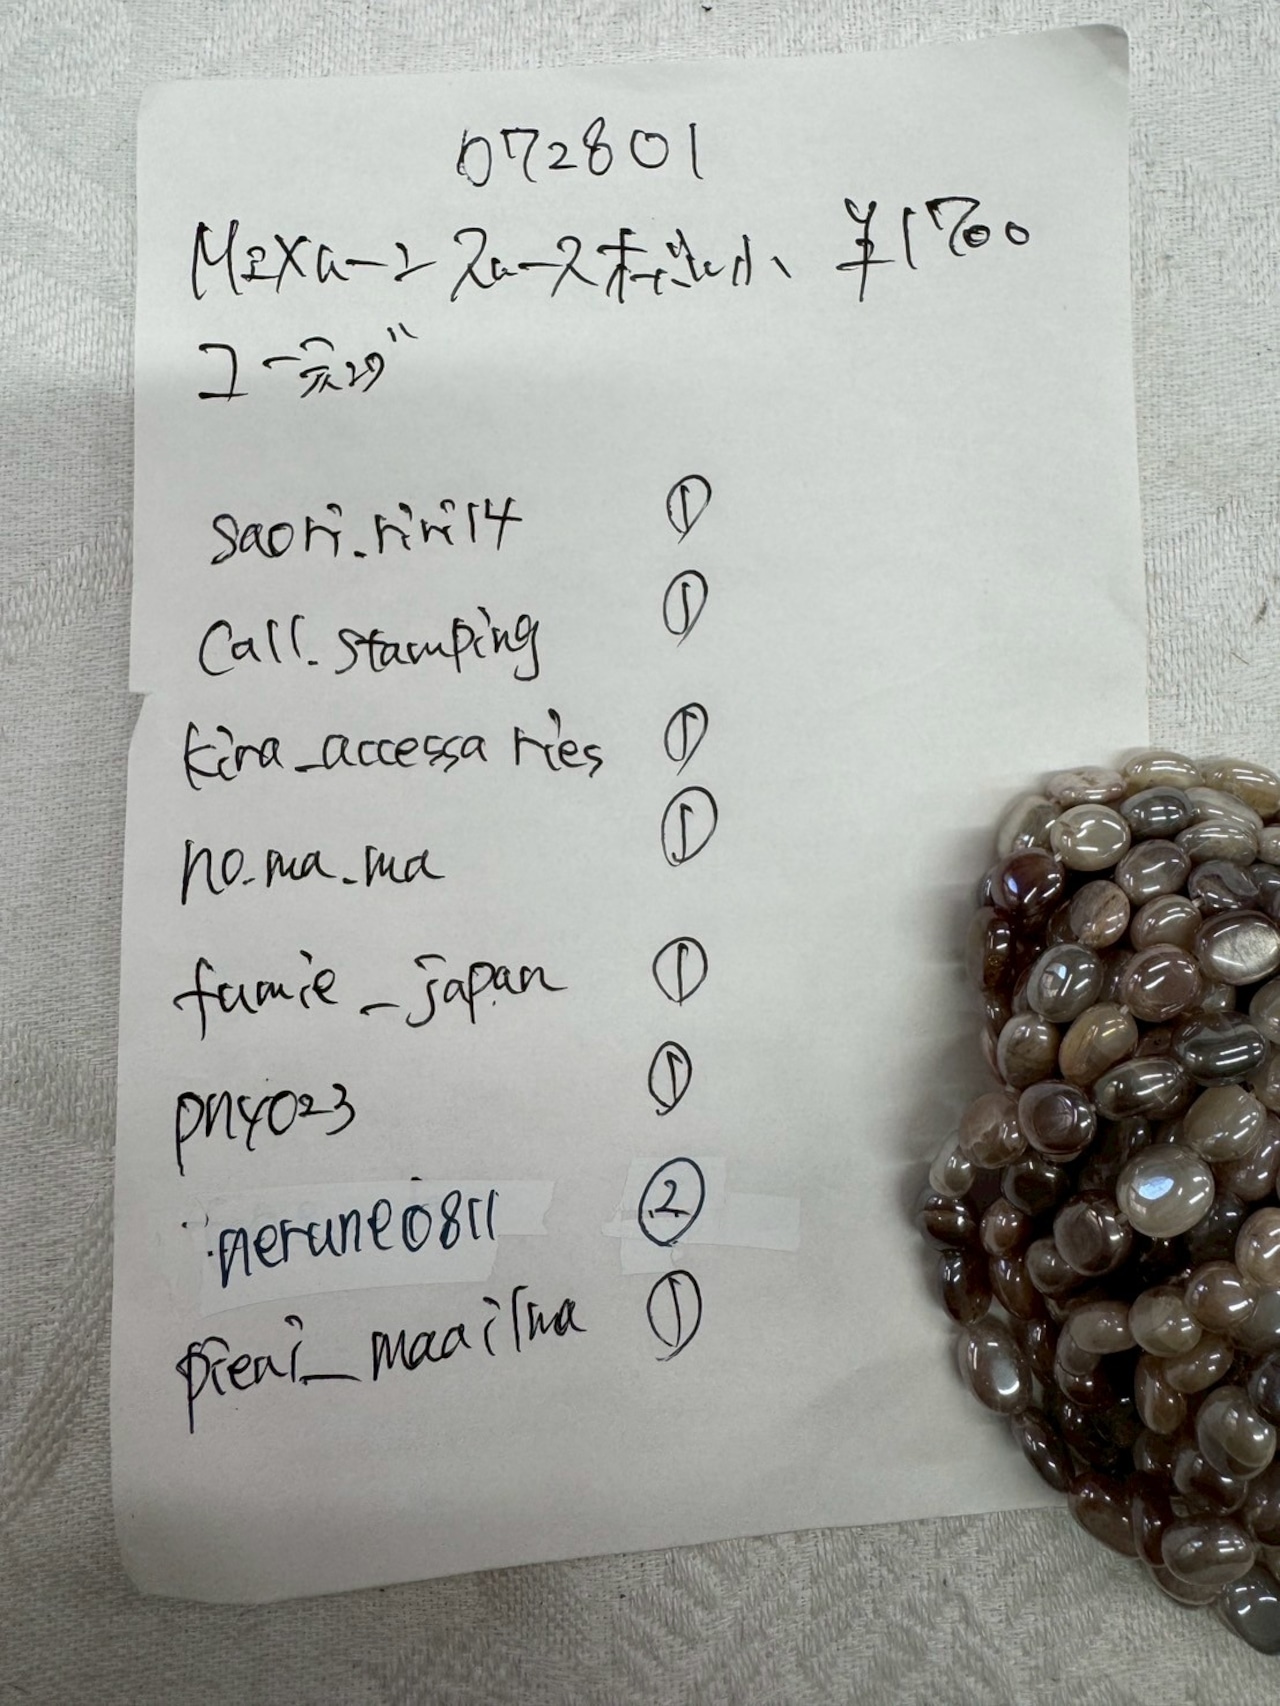 072801
¥1700
コーティング
saori.riri14 ①
Call.stamping ①
kira_accessaries ①
no.ma.ma ①
fumie_japan ①
pny023 ①
nerune0811 ②
pieni_maailma ①